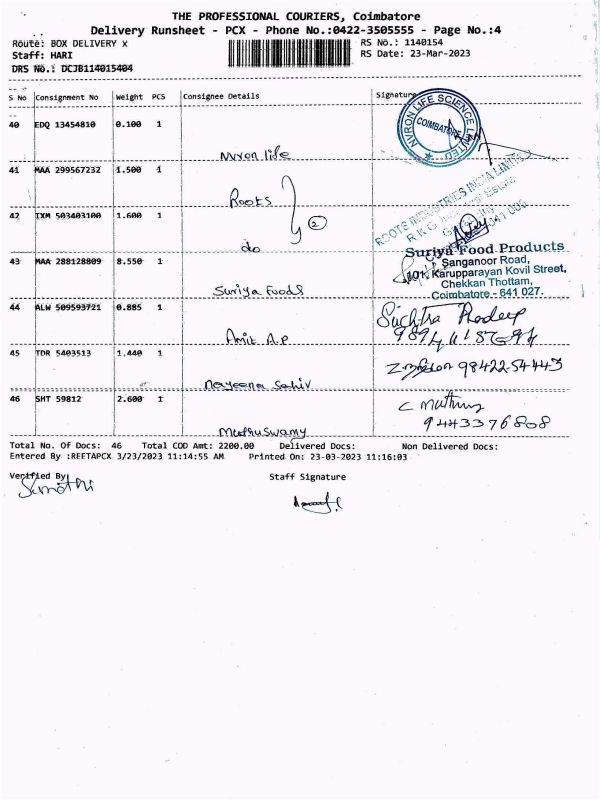 THE PROFESSIONAL COURIERS, Coimbatore
Delivery Runsheet - PCX - Phone No.:0422-3505555 - Page No.:4
Route: BOX DELIVERY x
RS No.: 1140154
Staff: HARI
RS Date: 23-Mar-2023
DRS No.: DCJB114015404
S No Consignment No Weight PCS Consignee Details Signature
40 EDQ 13454810 0.100 1
Nvron life
NVRON LIFE SCIENCE LIMITED
COIMBATORE
41 MAA 299567232 1.500 1
Roots
ROOTS INDUSTRIES INDIA LIMITED
R K G Industrial Estate
42 IXM 503403100 1.600 1
2
do
43 MAA 288128809 8.550 1
Suriya Foods
Suriya Food Products
Sanganoor Road,
101, Karupparayan Kovil Street,
Chekkan Thottam,
Coimbatore - 641 027.
44 ALW 509593721 0.885 1
Amit A.P
Suchtra Pradeep
45 TDR 5403513 1.440 1
nayeena Sahiv
98422-54443
46 SHT 59812 2.600 1
Muthuswamy
C Muthu
9443376808
Total No. Of Docs: 46 Total COD Amt: 2200.00 Delivered Docs: Non Delivered Docs:
Entered By :REETAPCX 3/23/2023 11:14:55 AM Printed On: 23-03-2023 11:16:03
Verified By
Staff Signature
Sumathi